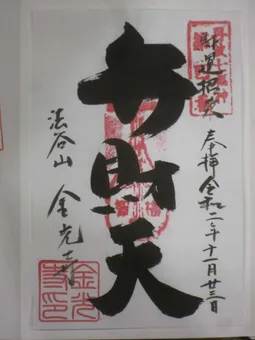 財運招来
奉拝 令和二年十一月廿三日
弁財天
法谷山 金光寺
金光
寺印